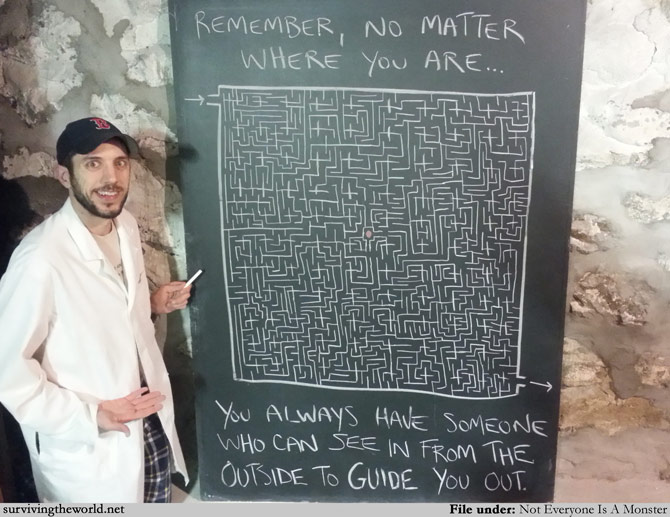 REMEMBER, NO MATTER
WHERE YOU ARE...
B
YOU ALWAYS HAVE SOMEONE
WHO CAN SEE IN FROM THE
OUTSIDE TO GUIDE YOU OUT.
survivingtheworld.net
File under: Not Everyone Is A Monster